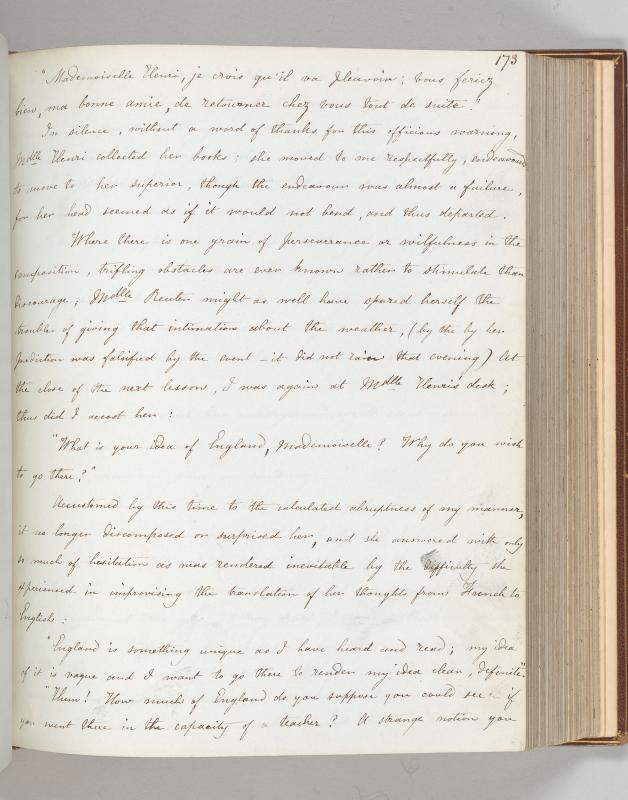 173
"Mademoiselle Henri, je crois qu'il va pleuvoir; vous feriez
bien, ma bonne amie, de retourner chez vous tout de suite."
In silence, without a word of thanks for this officious warning,
Mdlle Henri collected her books; she moved to me respectfully, endeavoured
to move to her superior, though the endeavour was almost a failure,
for her head seemed as if it would not bend, and thus departed.
Where there is one grain of perseverance or wilfulness in the
composition, trifling obstacles are ever known rather to stimulate than
discourage; Mdlle Reuter might as well have spared herself the
trouble of giving that intimation about the weather, (by the by her
prediction was falsified by the event - it did not rain that evening) At
the close of the next lesson, I was again at Mdlle Henri's desk;
thus did I accost her:
"What is your idea of England, Mademoiselle? Why do you wish
to go there?"
Accustomed by this time to the calculated abruptness of my manner,
it no longer discomposed or surprised her, and she answered with only
so much of hesitation as was rendered inevitable by the difficulty she
experienced in improvising the translation of her thoughts from French to
English:
"England is something unique as I have heard and read; my idea
of it is vague and I want to go there to render my idea clear, definite."
"Hum! How much of England do you suppose you could see if
you went there in the capacity of a teacher? A strange notion you